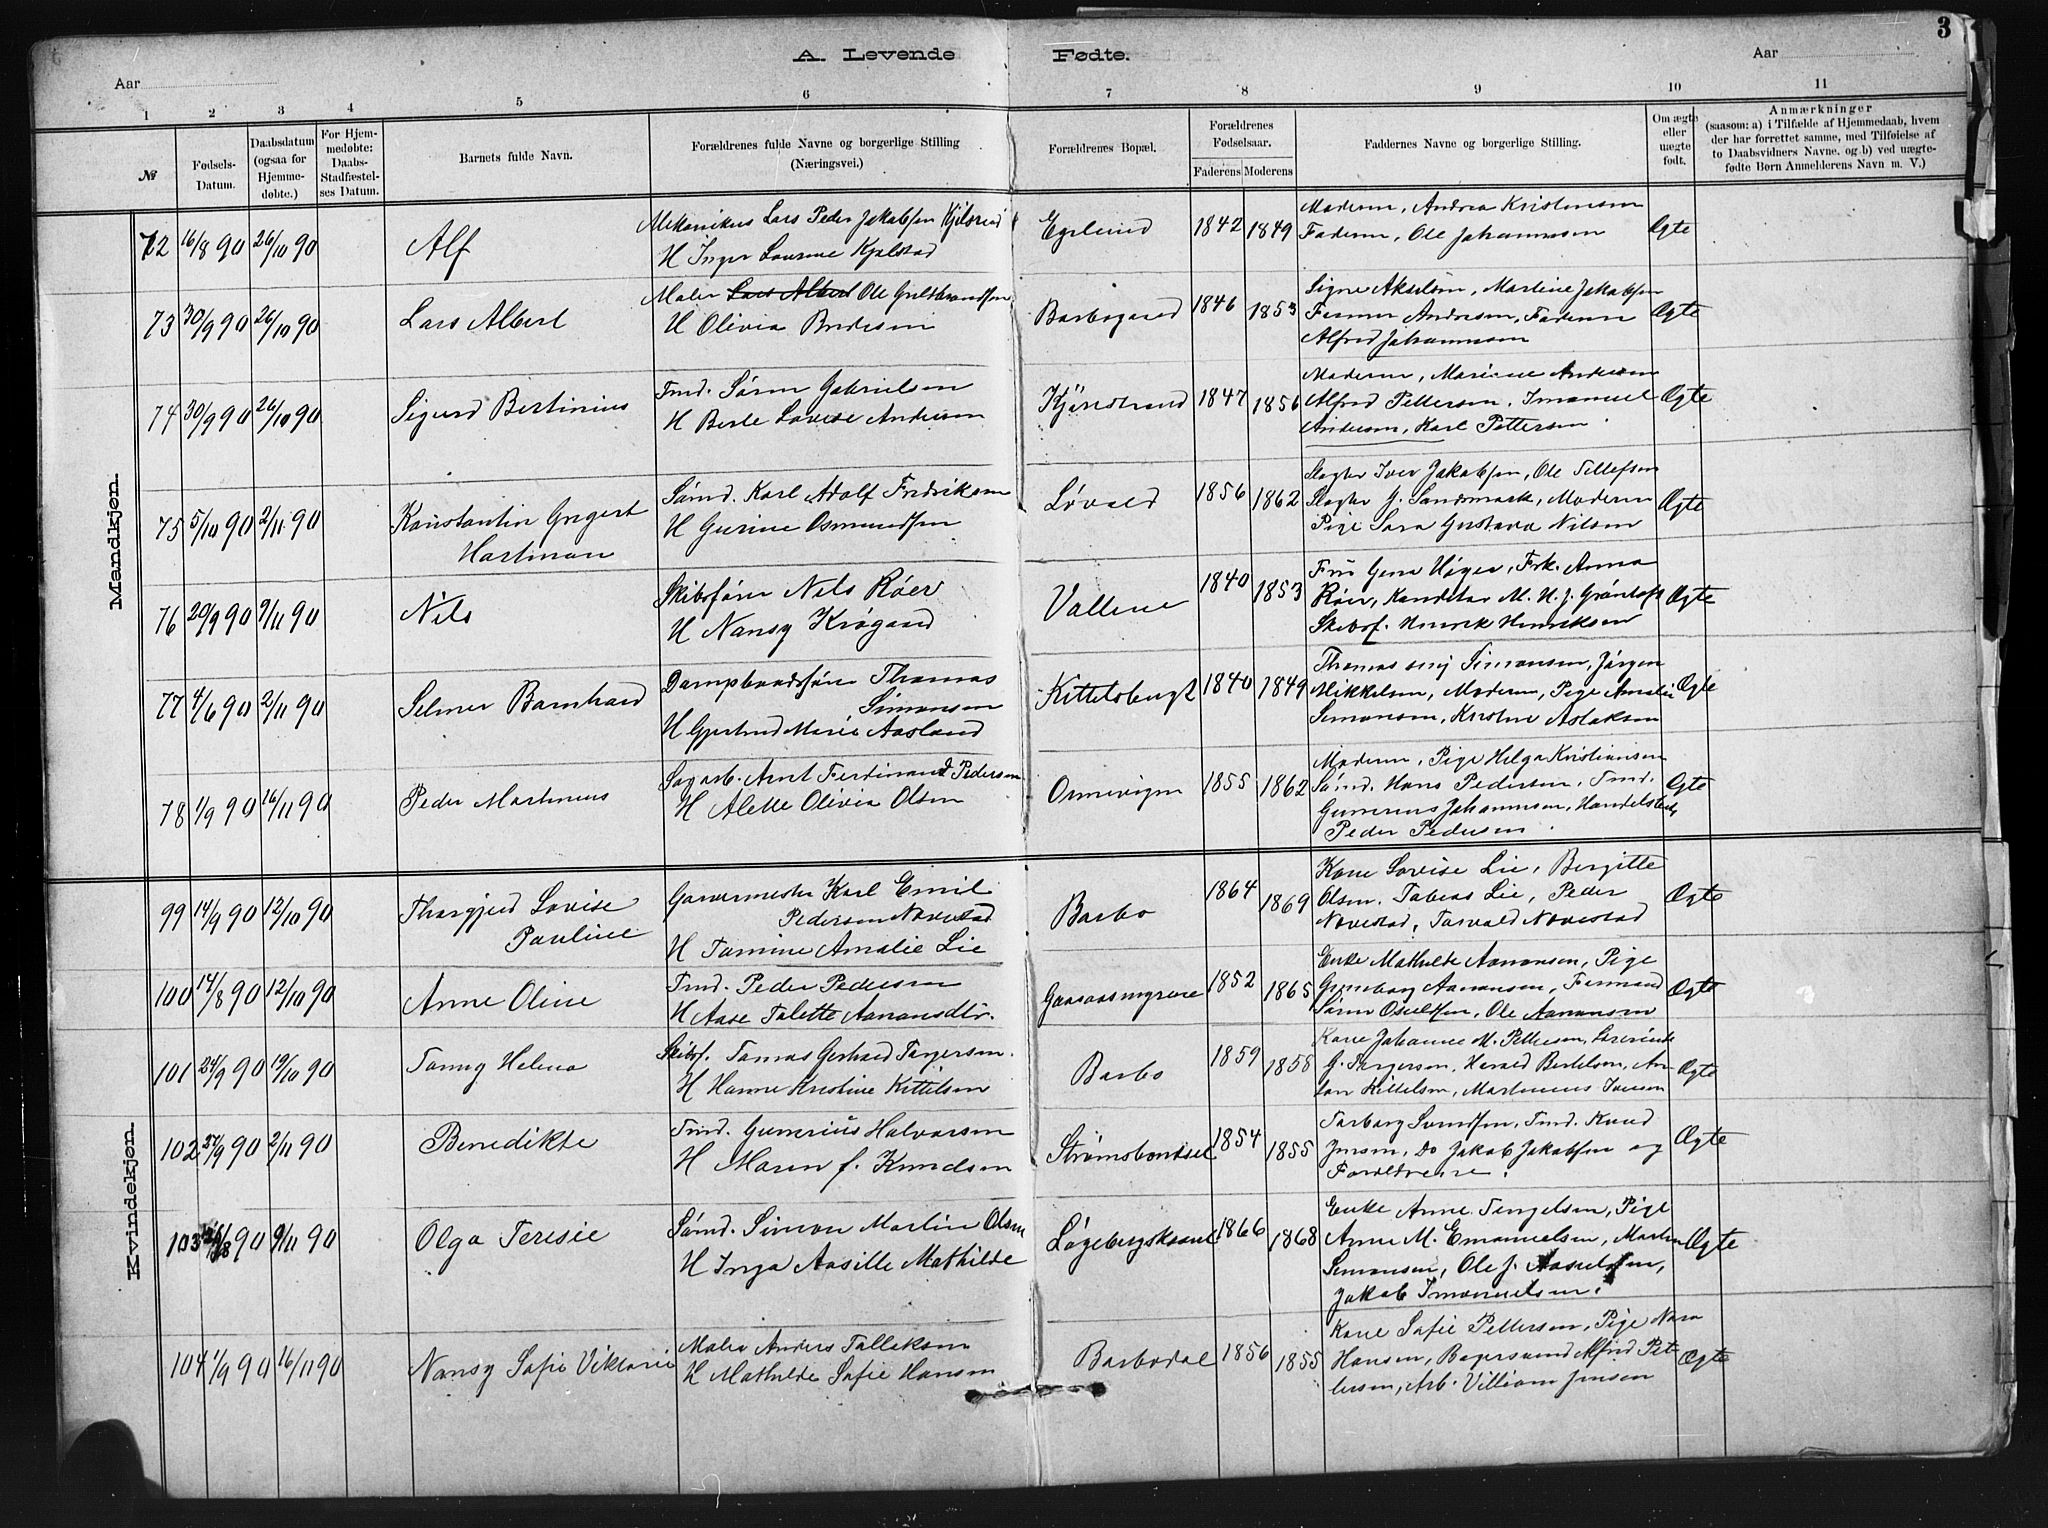 3
A. Levende Fødte.
Aar
Aar
1 2 3 4 5 6 7 8 9 10 11
№
Fødsels-Datum.
Daabsdatum (ogsaa for Hjemme-døbte.)
For Hjem-medøbte: Daabs-Stadfæstel-ses Datum.
Barnets fulde Navn.
Forældrenes fulde Navne og borgerlige Stilling
(Næringsvei.)
Forældrenes Bopæl.
Forældrenes Fødselsaar.
Faderens Moderens
Faddernes Navne og borgerlige Stilling.
Om ægte eller uægte født.
Anmærkninger
(saasom: a) i Tilfælde af Hjemmedaab, hvem
der har forrettet samme, med Tilføielse af
to Daabsvidners Navne. og b) ved uægte-
fødte Børn Anmelderens Navn m. V.)
Mandkjøn.
72 16/8 90 26/10 90 Alf
Mekanikus Lars Peder Jakobsen
H Inger Laurine Kjelstad
1842 1849
Moderen, Andrea Kristensen
Faderen, Ole Johannesen
Ægte
73 30/9 90 26/10 90 Lars Albert
Maler Lars Albert Ole Guldbrandsen
H Olivia
Barbogaard 1846 1853
Signe Akselsen, Martine Jakobsen
Andresen, Faderen
Alfred Johannesen
Ægte
74 30/9 90 26/10 90 Sigurd Bertinius
Tmd. Søren Gabrielsen
H Berte Lovise Andersen
Kjørestrand 1847 1856
Moderen, Marine Andersen
Alfred Pettersen, Imanuel
Andersen, Karl Pettersen
Ægte
75 5/10 90 2/11 90 Konstantin Gregert
Hartman
Sømd. Karl Adolf Fredriksen
H Gurine Osmundsen
Løvold 1856 1862
Slagter Iver Jakobsen, Ole Tellefsen
Slagter J. Sandmark, Moderen
Pige Sara Gustava Nilsen
Ægte
76 20/9 90 9/11 90 Nils
Skibsfører Nils Røer
H Nansy Krøgaard
Vallene 1840 1853
Fru Gena Høyer, Frk. Anna
Røer, Kandidat M. H. J. Grøntoft
Skibsf. Henrik Henriksen
Ægte
77 4/6 90 2/11 90 Selmer Barnhard
Dampbaadsfører Thomas
Simonsen
H Gjertrud Marie Aasland
Kittelsbugt 1840 1849
Thomas Simonsen, Jørgen
Mikkelsen, Moderen, Pige Amalie
Simonsen, Kristine Aslaksen
Ægte
78 1/9 90 16/11 90 Peder Martinius
Sagarb. Arnt Ferdinand Pedersen
H Alette Olivia Olsen
Osmevigen 1855 1862
Moderen, Pige Helga Kristiansen
Sømd. Hans Pedersen, Tmd.
Gunerius Johannesen, Handelsbetj.
Peder Pedersen
Ægte
Kvindekjøn.
99 14/9 90 12/10 90 Thorgjerd Lovise
Pauline
Garvermester Karl Emil
Pedersen Novestad
H Tomine Amalie Lie
Barbo 1864 1869
Kone Lovise Lie, Bergitte
Olsen, Tobias Lie, Peder
Novestad, Torvald Novestad
Ægte
100 14/8 90 12/10 90 Anne Oline
Tmd. Peder Pedersen
H Aase Talette Aanonsdtr.
1852 1865
Enke Mathilde Aanonsen, Pige
Guneborg Aanonsen, Fermand
Søren Osuldsen, Ole Aanonsen
Ægte
101 24/9 90 19/10 90 Tomy Helena
Skibsf. Tomas Gerhard Torjersen.
H Hanne Kristine Kittilsen
Barbo 1859 1858
Kone Johanne M. Pettersen,
G. Torgersen, Harald Bertelsen, An-
ton Kittelsen, Martinius Iversen
Ægte
102 27/9 90 2/11 90 Benedikte
Tmd. Gunerius Halvorsen
H Maren J. Knudsen
Strømsbordset 1854 1855
Torborg Svendsen, Tmd. Knud
Jensen, Do Jakob Jakobsen og
Forældrene.
Ægte
103 90 9/11 90 Olga Teresie
Sømd. Simon Martin Olsen
H Inga Aasille Mathilde
1866 1868
Enke Anne Tengelsen, Pige
Anne M. Emanuelsen, Martin
Simonsen, Ole J.
Jakob Imanuelsen.
Ægte
104 1/9 90 16/11 90 Nansy Sofie Viktorie
Maler Anders Tallaksen
H Mathilde Sofie Hansen
Barbodal 1856 1855
Kone Sofie Pettersen, Pige Nora
Hansen, Bagersvend Alfred Pet-
tersen, Arb. Villiam Jensen
Ægte